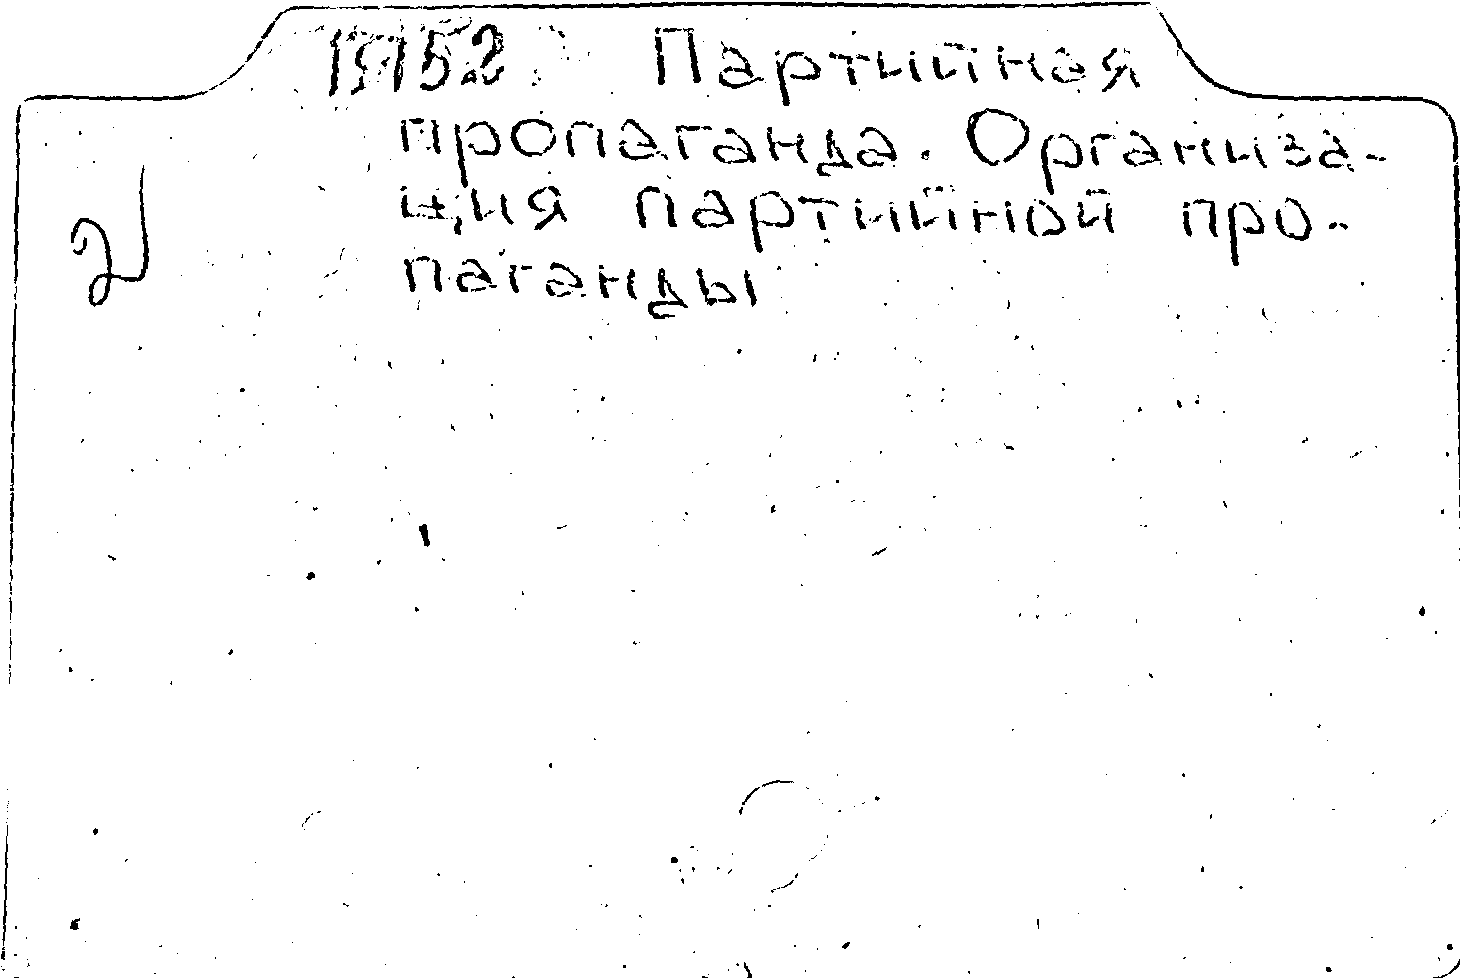 Партийная
пропаганда. Организа-
ция партийной про-
паганды